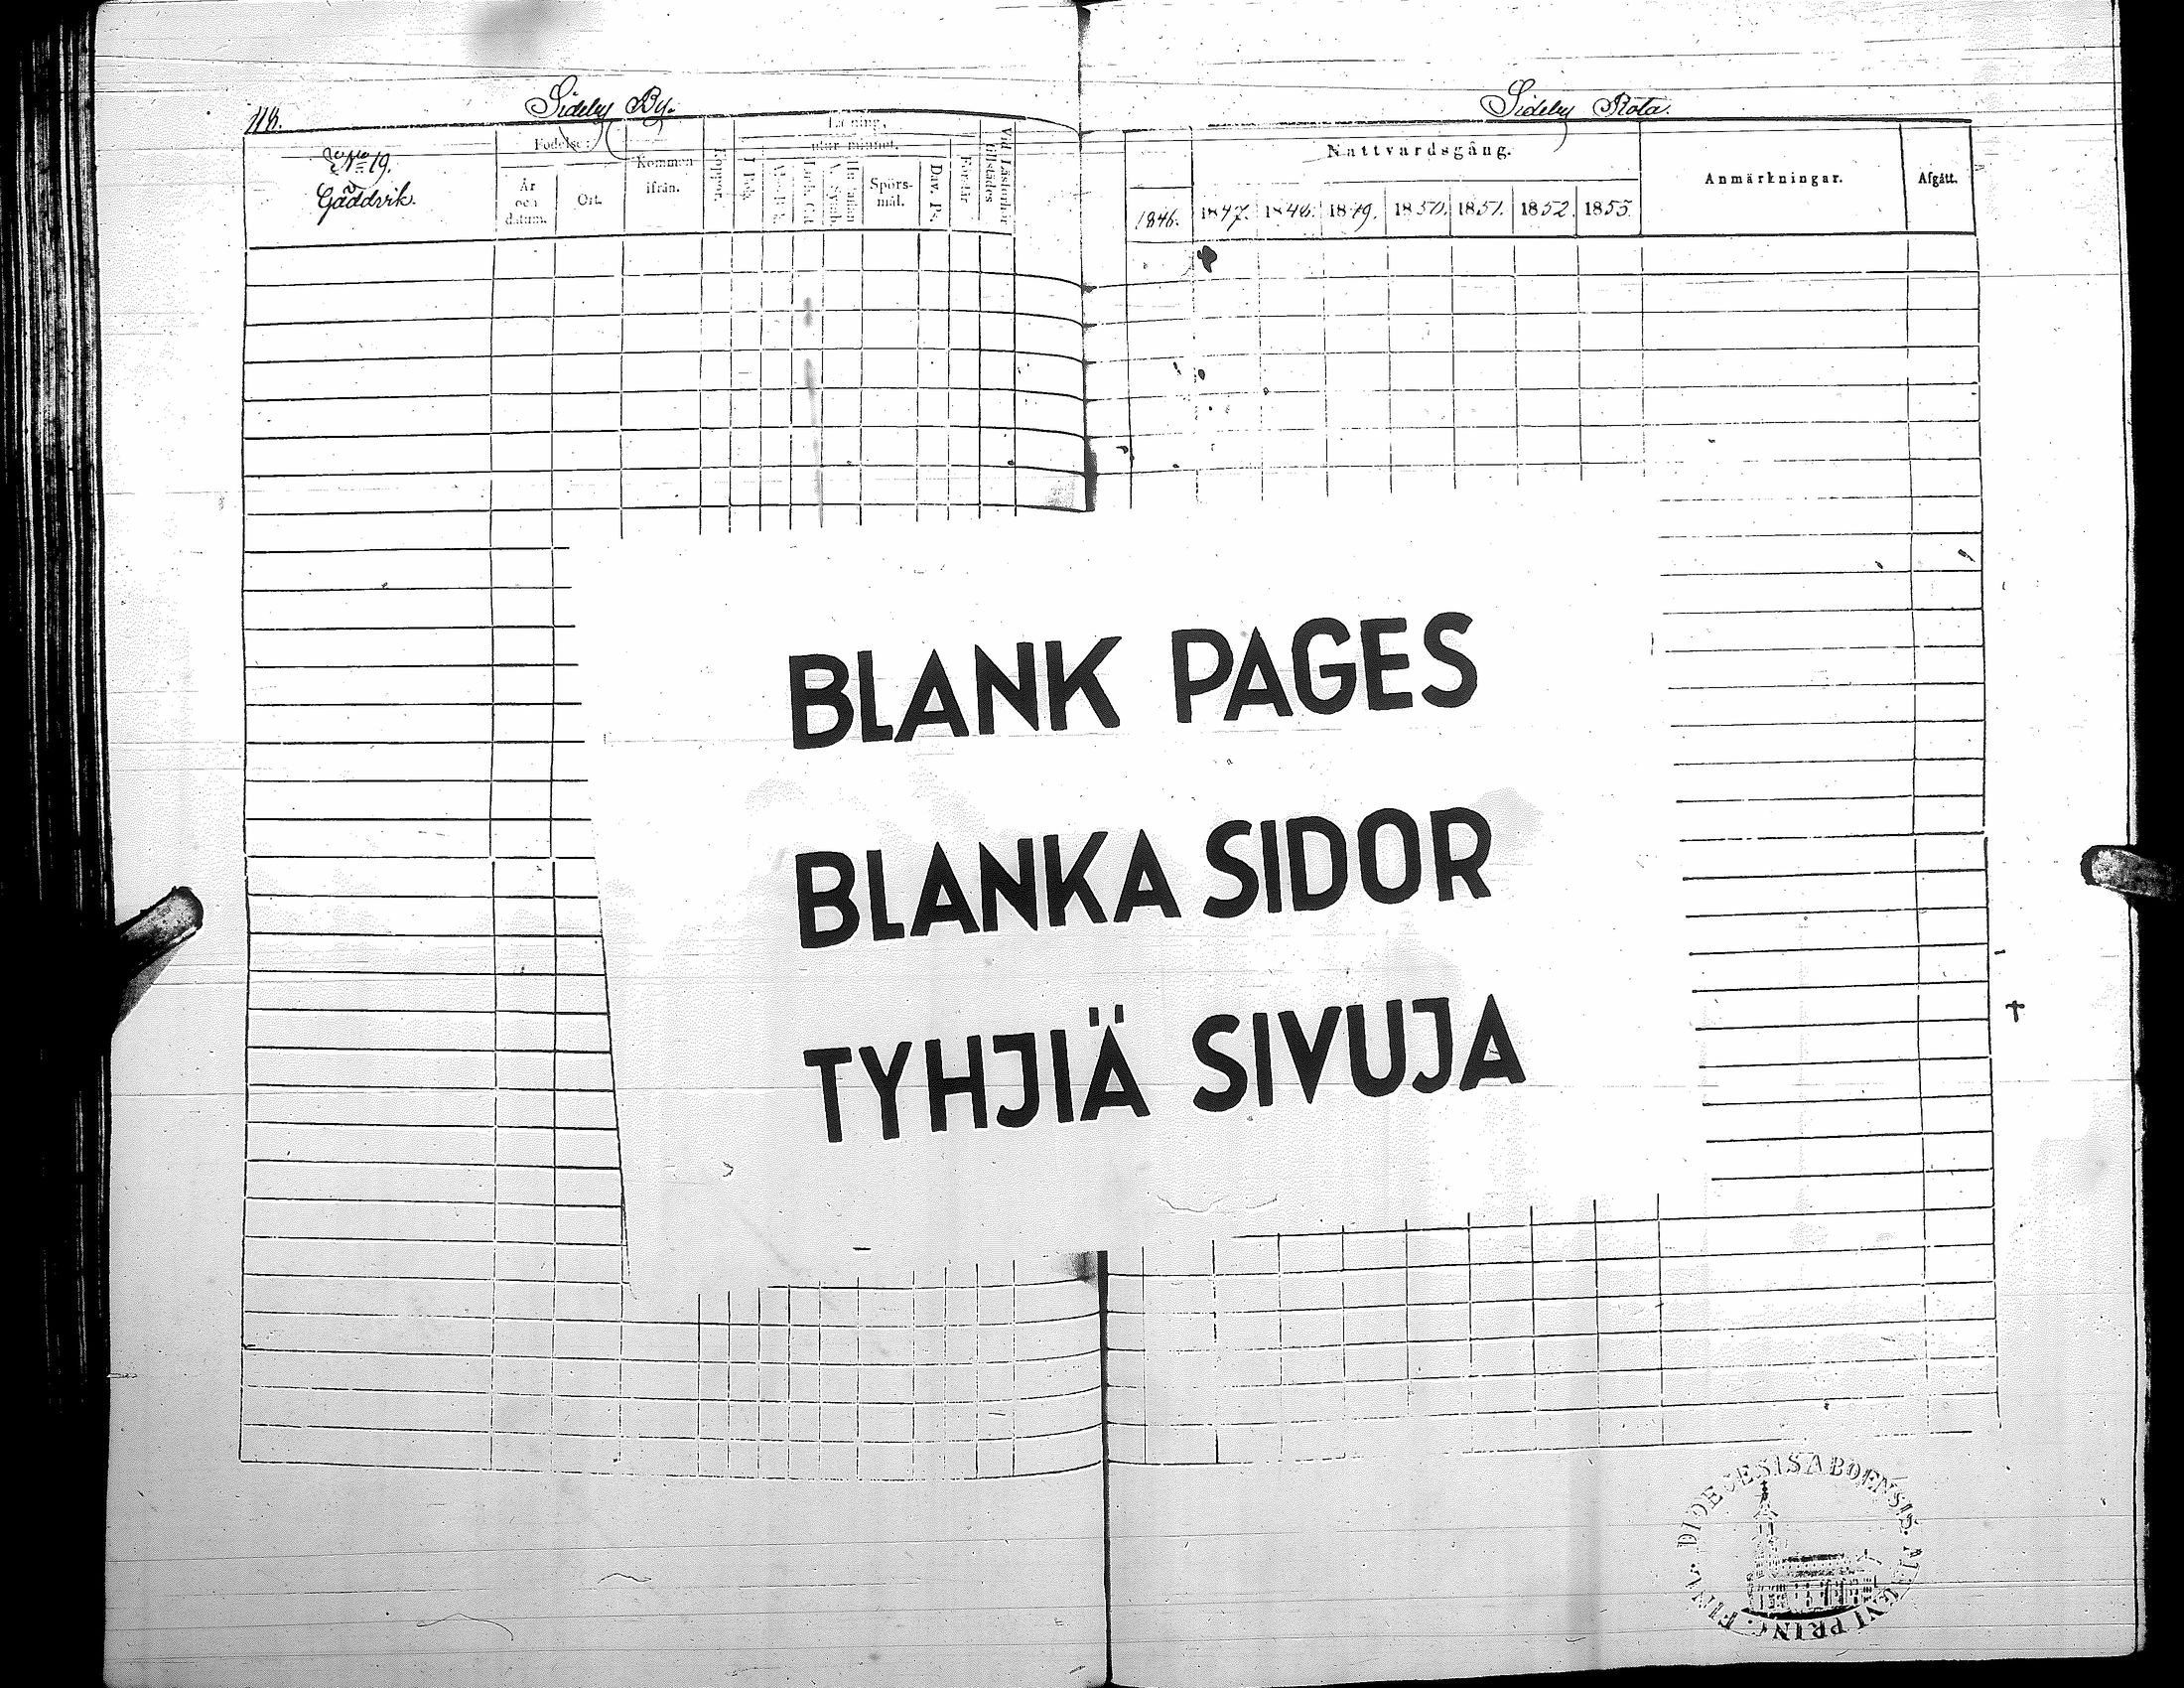 118.
Sideby By.
Sideby Rota.
No 19.
Gäddvik.
Födelse:
År och datum.
Ort.
Kommen ifrån.
Koppor.
Läsning,
utur minnet.
Spörs-mål.
Dav. Ps.
Förstår
Vid Läsförhör tillstädes
Nattvardsgång.
1846. 1847. 1848. 1849. 1850. 1851. 1852. 1853.
Anmärkningar.
Afgått.
BLANK PAGES
BLANKA SIDOR
TYHJIÄ SIVUJA
DIOECESIS ABOENSIS.